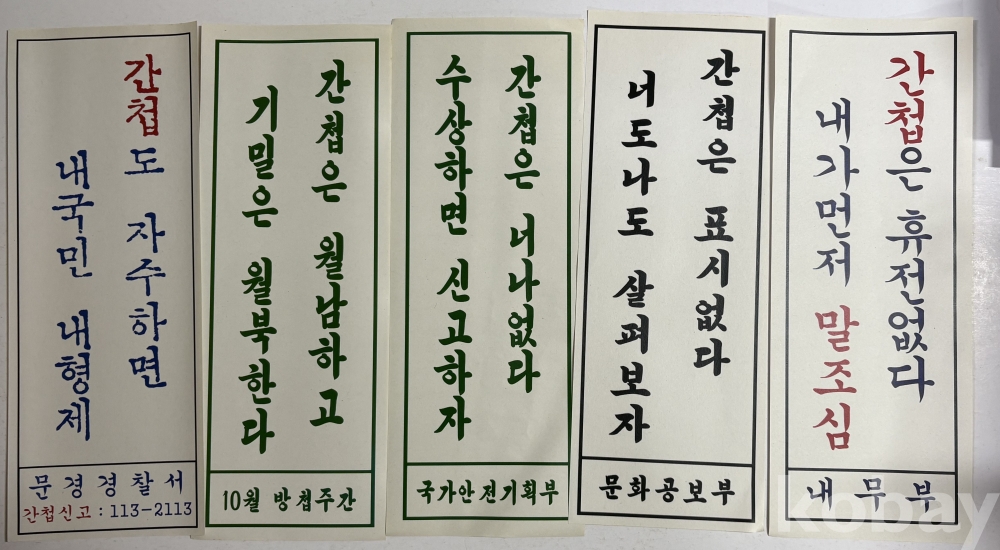 간첩도 자수하면
내국민 내형제
문경경찰서
간첩신고 : 113-2113
간첩은 월남하고
기밀은 월북한다
10월 방첩주간
간첩은 너나없다
수상하면 신고하자
국가안전기획부
간첩은 표시없다
너도나도 살펴보자
문화공보부
간첩은 휴전없다
내가먼저 말조심
내무부
kobay